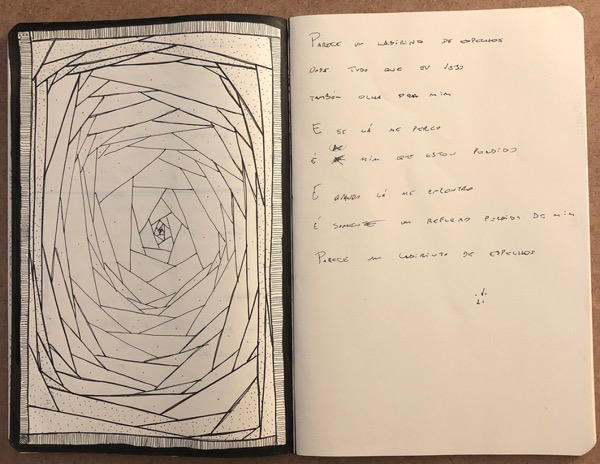 PARECE UM LABIRINTO DE ESPELHOS
ONDE TUDO QUE EU VEJO
TAMBEM OLHA PRA MIM
E SE LÁ ME PERCO
É MIM QUE ESTOU
E QUANDO LÁ ME ENCONTRO
É SOMENTE UM REFLEXO PERDIDO DE MIM
PARECE UM LABIRINTO DE ESPELHOS